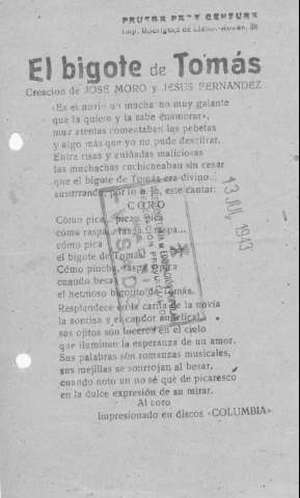 PRUEBA PARA CENSURA
Imp. Rodríguez
El bigote de Tomás
Creación de JOSE MORO y JESUS FERNANDEZ
«Es el novio un muchacho muy galante
que la quiere y la sabe enamorar»,
muy atentas comentaban las pebetas
y algo más que yo no pude descifrar.
Entre risas y guiñadas maliciosas
las muchachas cuchicheaban sin cesar
que el bigote de Tomás era divino...
susurrando por lo bajo, este cantar:
CORO
Cómo pica... pica
cómo raspa... raspa, raspa...
cómo pica
el bigote de Tomás
Cómo pincha, pincha
cuando besa
el hermoso bigotito de Tomás.
Resplandece en la carita de la novia
la sonrisa y el candor angelical
sus ojitos son luceros en el cielo
que iluminan la esperanza de un amor.
Sus palabras son romanzas musicales,
sus mejillas se sonrrojan al besar,
cuando noto un no sé qué de picaresco
en la dulce expresión de su mirar.
Al coro
Impresionado en discos «COLUMBIA»
13 JUL 1943